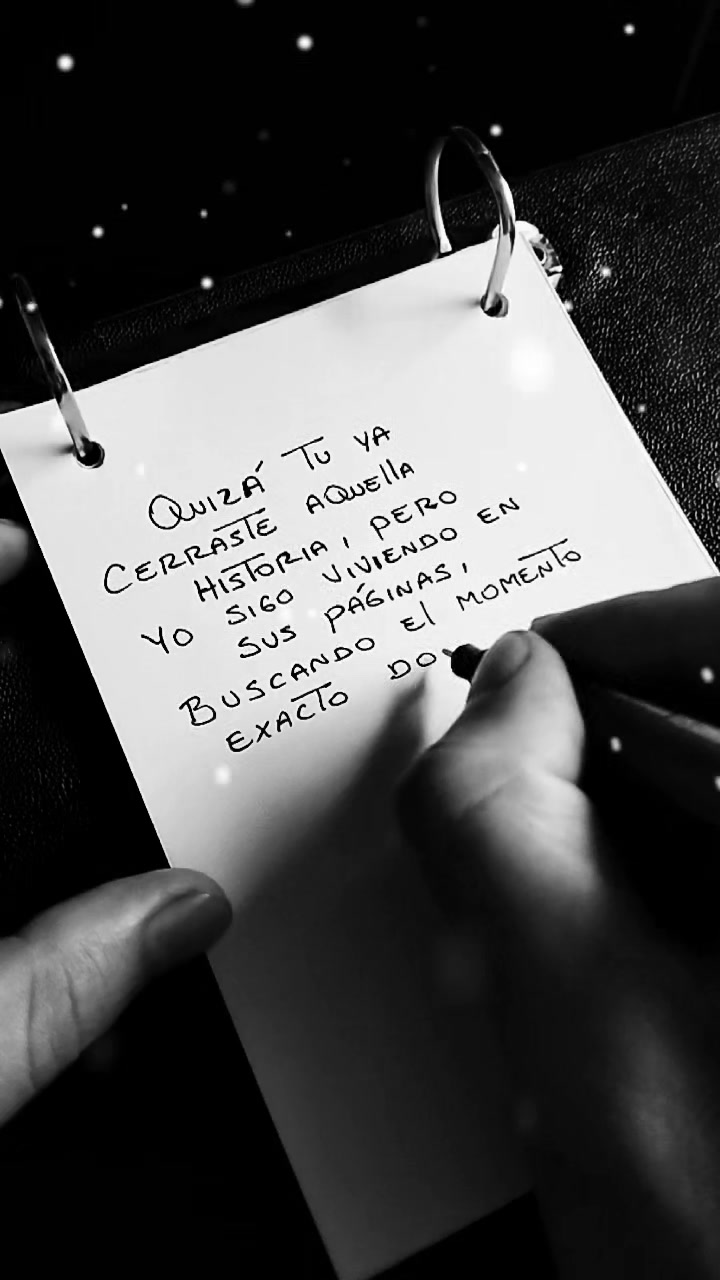 QUIZÁ TU YA
CERRASTE AQUEllA
HISTORIA, PERO
YO SIGO VIVIENDO EN
SUS PÁGINAS,
BUSCANDO El MOMENTO
EXACTO DO